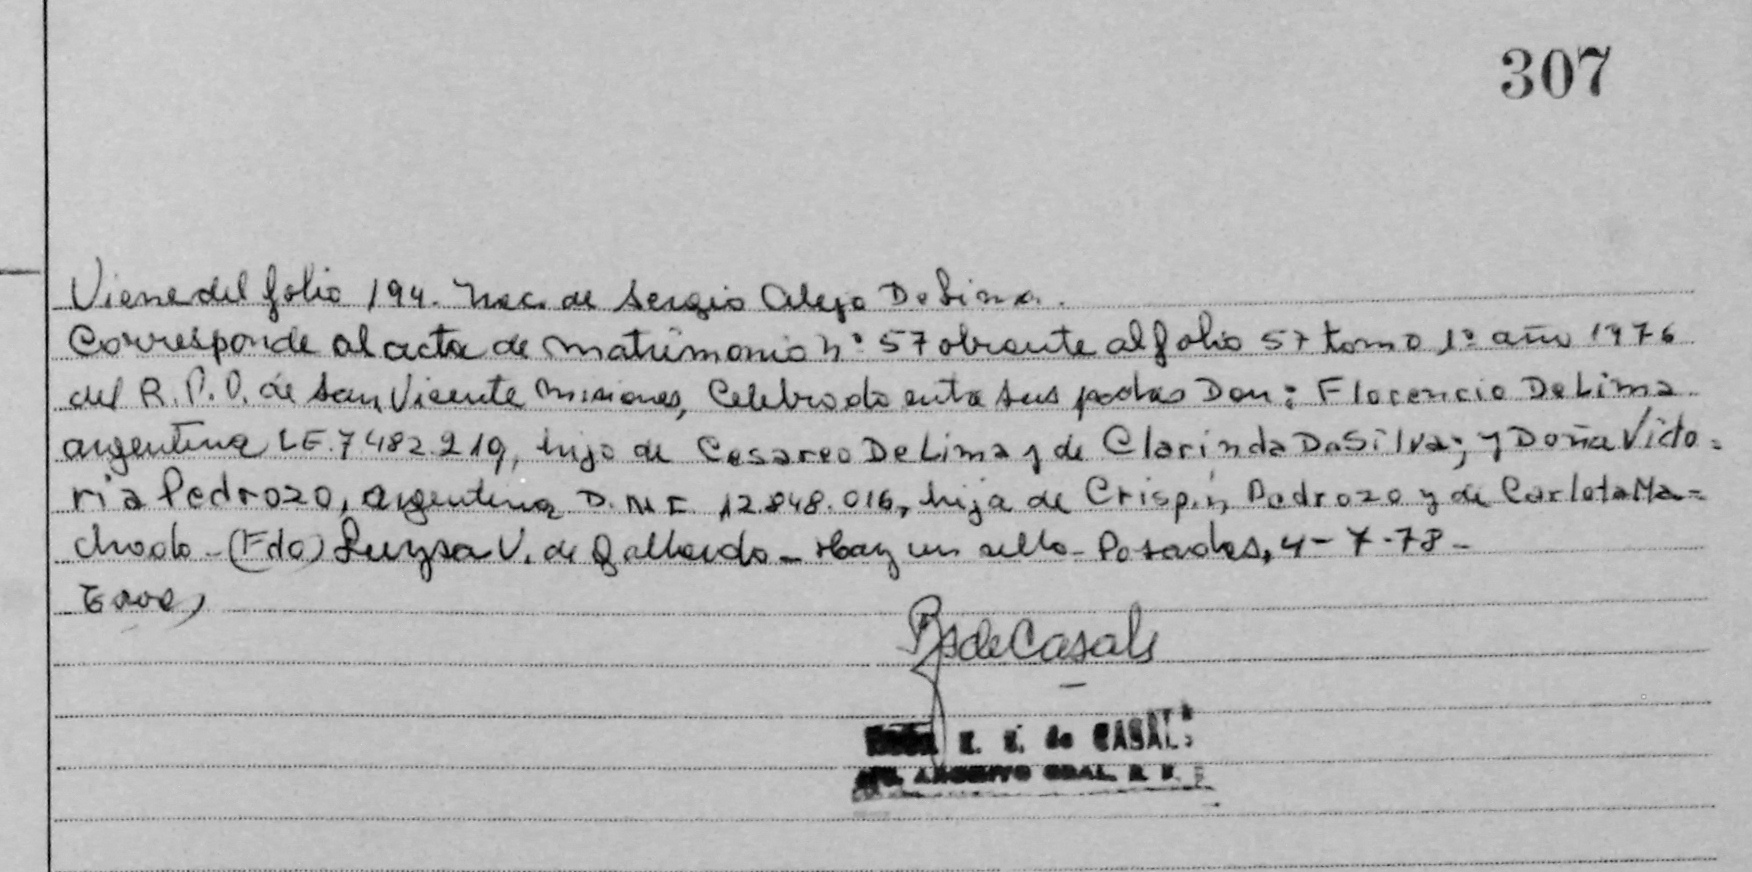 307
Viene del folio 194. Nac. de Sergio Alejo De Lima.
Corresponde al acta de matrimonio Nº 57 obrante al folio 57 tomo 1º año 1976
del R.P.V. de San Vicente Misiones, Celebrado entre sus padres Don: Florencio De Lima
argentino LE. 7482.219, hijo de Cesareo De Lima y de Clarinda DaSilva; y Doña Victo=
ria Pedrozo, argentina D.N.I. 12.848.016, hija de Crispin Pedrozo y de Carlota Ma=
chado - (Fdo) Luysa V. de Gallardo - Hay un sello - Posadas, 4-7-78-
de Casals
de CASALS
ARCHIVO GRAL. R. P.